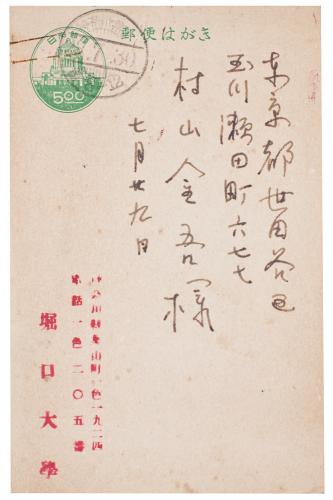 郵便はがき
日本郵便
500
30
東京都世田谷区
玉川瀬田町六七七
村山金吾様
七月廿九日
神奈川県葉山町一色一九二四
電話一色二〇五番
堀口大學